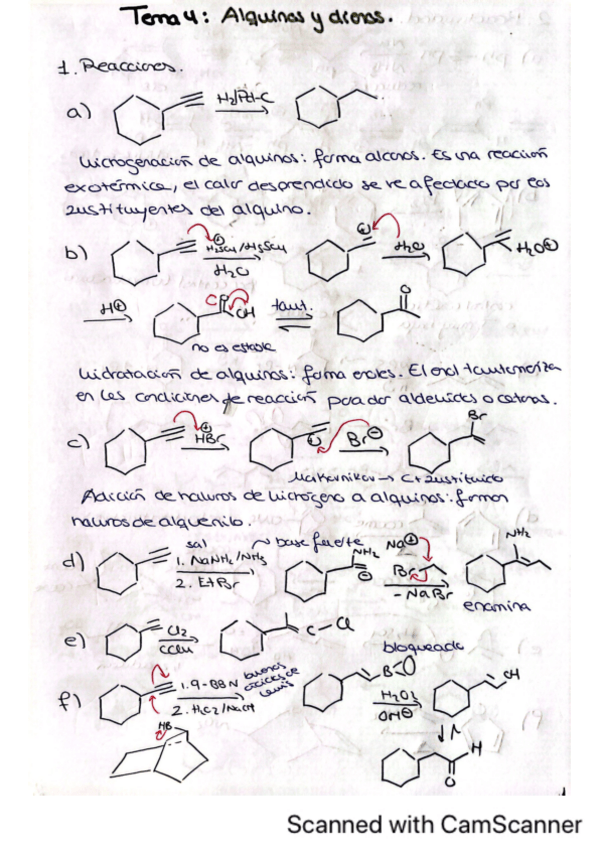 Tema 4: Alquinos y dienos.
1. Reacciones.
a) H2/Pd-C
Hidrogenación de alquinos: forma alcanos. Es una reacción
exotérmica, el calor desprendido se ve afectado por los
sustituyentes del alquino.
b) H2SO4/HgSO4 H2O H2O⊕
H2O
H⊕ OH taut. O
no es estable
Hidratación de alquinos: forma enoles. El enol tautomeriza
en las condiciones de reacción para dar aldehídos o cetonas.
c) HBr Br⊖ Br
Markovnikov → C+ sustituido
Adición de haluros de hidrógeno a alquinos: forman
haluros de alquenilo.
d) sal base fuerte Na⊕ NH2
1. NaNH2/NH3 NH2 Br
2. EtBr - NaBr
enamina
e) Cl2 C-Cl bloqueado
CCl4
f) 1. 9-BBN buenos ácidos de Lewis B OH
2. H2O2/NaOH H2O2
OH⊖
HB H
O
Scanned with CamScanner